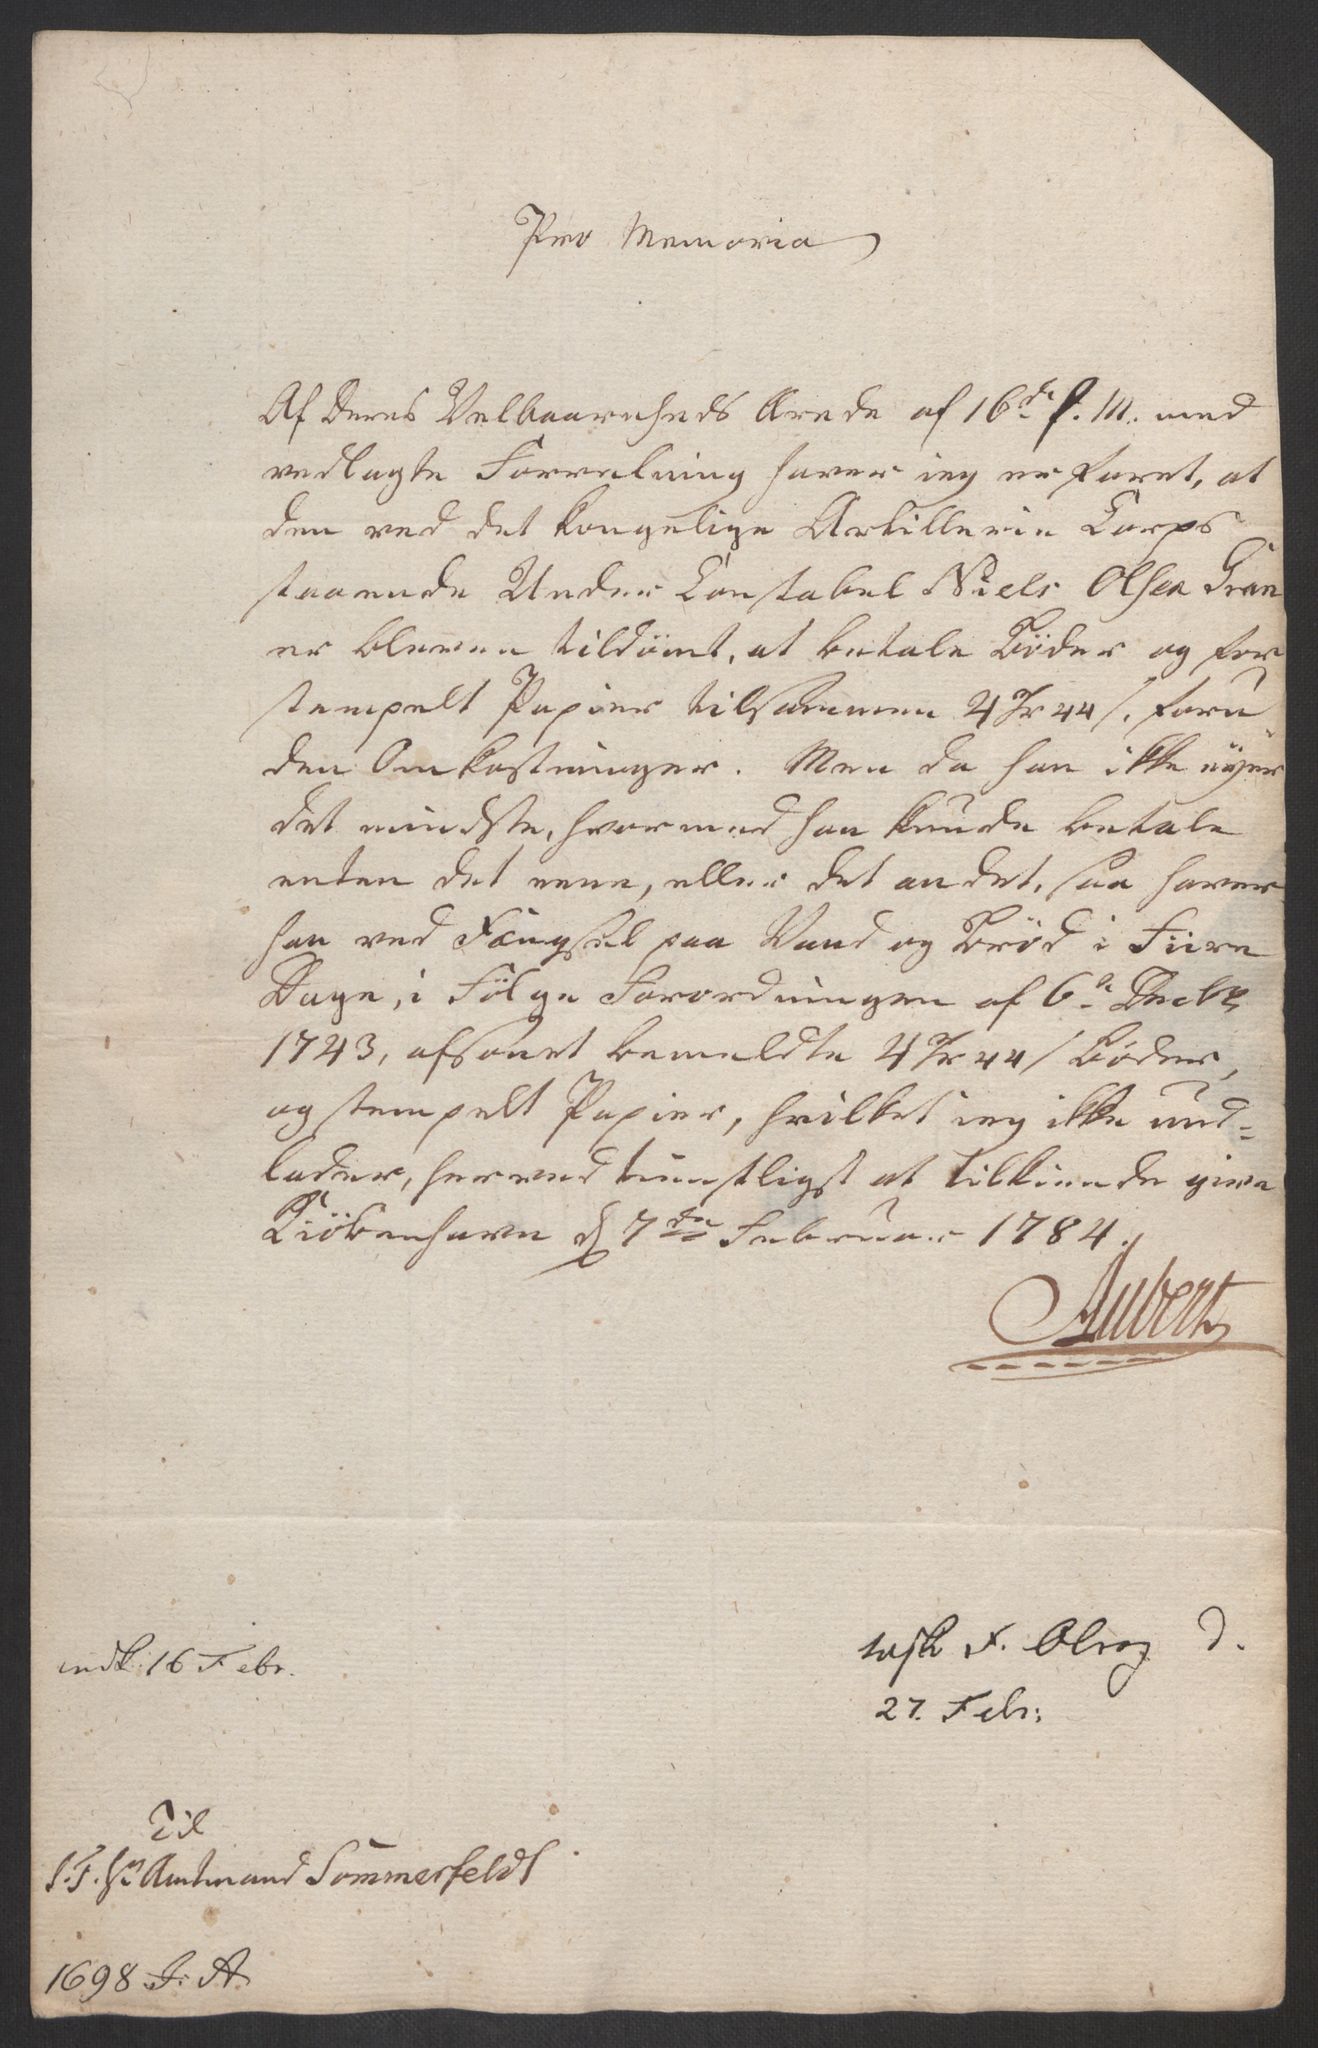 Pro Memoria
Af Deres Velbaarenheds Ærede af 16de p. M. med
vedlagte Forretning haver ieg erfaret, at
den ved det kongelige Artillerie Corps
staaende Under Constabel Niels Olsen Gran
er bleven tildömt, at betale Böder og for
stempelt Papier tilsammen 4 Rr 44 s. foru
den Omkostninger. Men da han ikke eÿer
det mindste, hvormed han kunde betale
enten det eene, eller det andet, saa haver
han ved Fængsel paa Vand og Bröd i Fiire
Dage, i Fölge Forordningen af 6te Decbr
1743, afsonet bemeldte 4 Rr 44 s Böder,
og stempelt Papier, hvilket ieg ikke und-
lader, herved tienstligst at tilkiende give
Kiöbenhavn d 7de Februar 1784.
Aubert
indk: 16 Febr.
F. Olrog D.
27. Febr:
Til
S. T. Hr Amtmand Sommerfeldt
1698 J. A